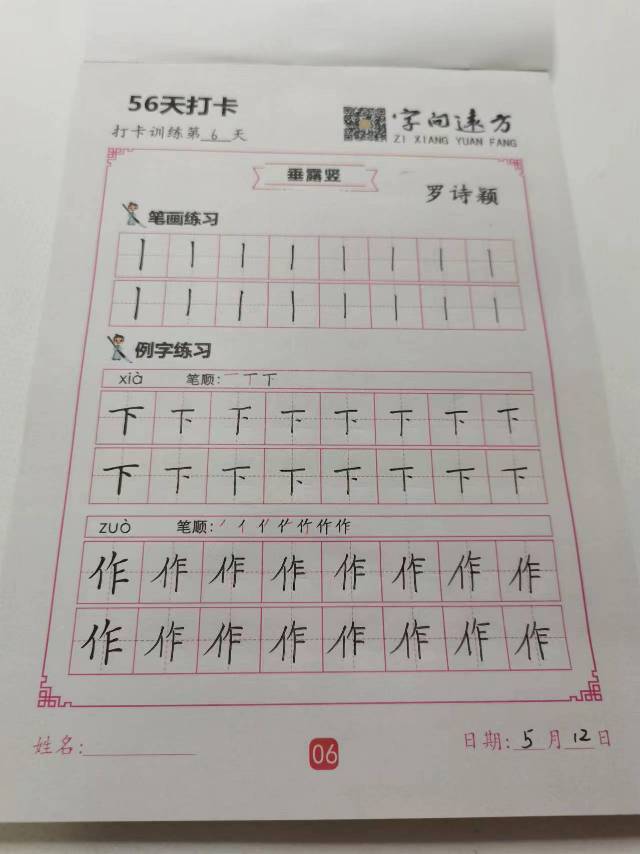 56天打卡
打卡训练第 6 天
字向远方
ZI XIANG YUAN FANG
垂露竖
罗诗颖
笔画练习
丨 丨 丨 丨 丨 丨 丨 丨
丨 丨 丨 丨 丨 丨 丨 丨
例字练习
xià 笔顺:一 丅 下
下 下 下 下 下 下 下 下
下 下 下 下 下 下 下 下
zuò 笔顺:
作 作 作 作 作 作 作 作
作 作 作 作 作 作 作 作
姓名:
06
日期: 5 月 12 日